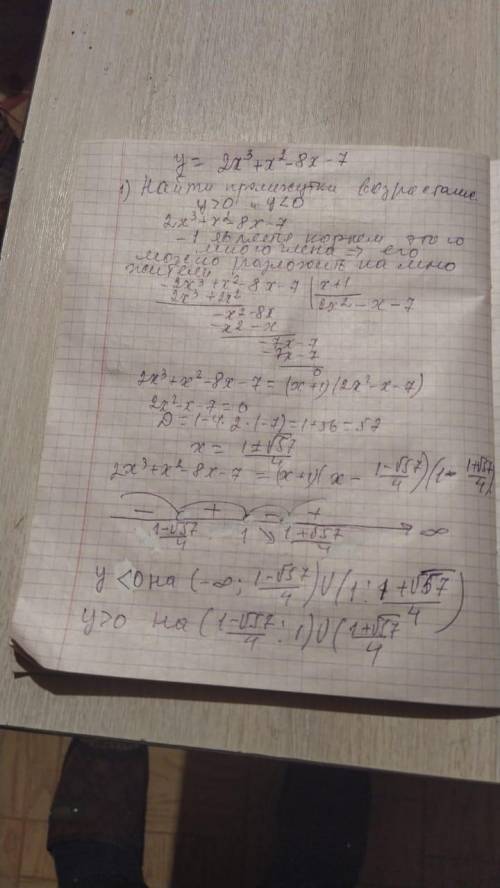 y = 2x³+x²-8x-7
1) Найти промежутки возрастание
y>0 и y<0
2x³+x²-8x-7
-1 является корнем этого
многочлена => его
можно разложить на мно
жители
-2x³+x²-8x-7 | x+1
2x³+2x² 2x²-x-7
-x²-8x
-x²-x
-7x-7
-7x-7
0
2x³+x²-8x-7 = (x+1)(2x²-x-7)
2x²-x-7=0
D=1-4·2·(-7)=1+56=57
x = 1±√57/4
2x³+x²-8x-7 = (x+1)(x - 1-√57/4)(1- 1+√57/4)
- + - +
1-√57/4 1 1+√57/4 ∞
y<0 на (-∞; 1-√57/4)U(1; 1+√57/4)
y>0 на (1-√57/4; 1)U(1+√57/4